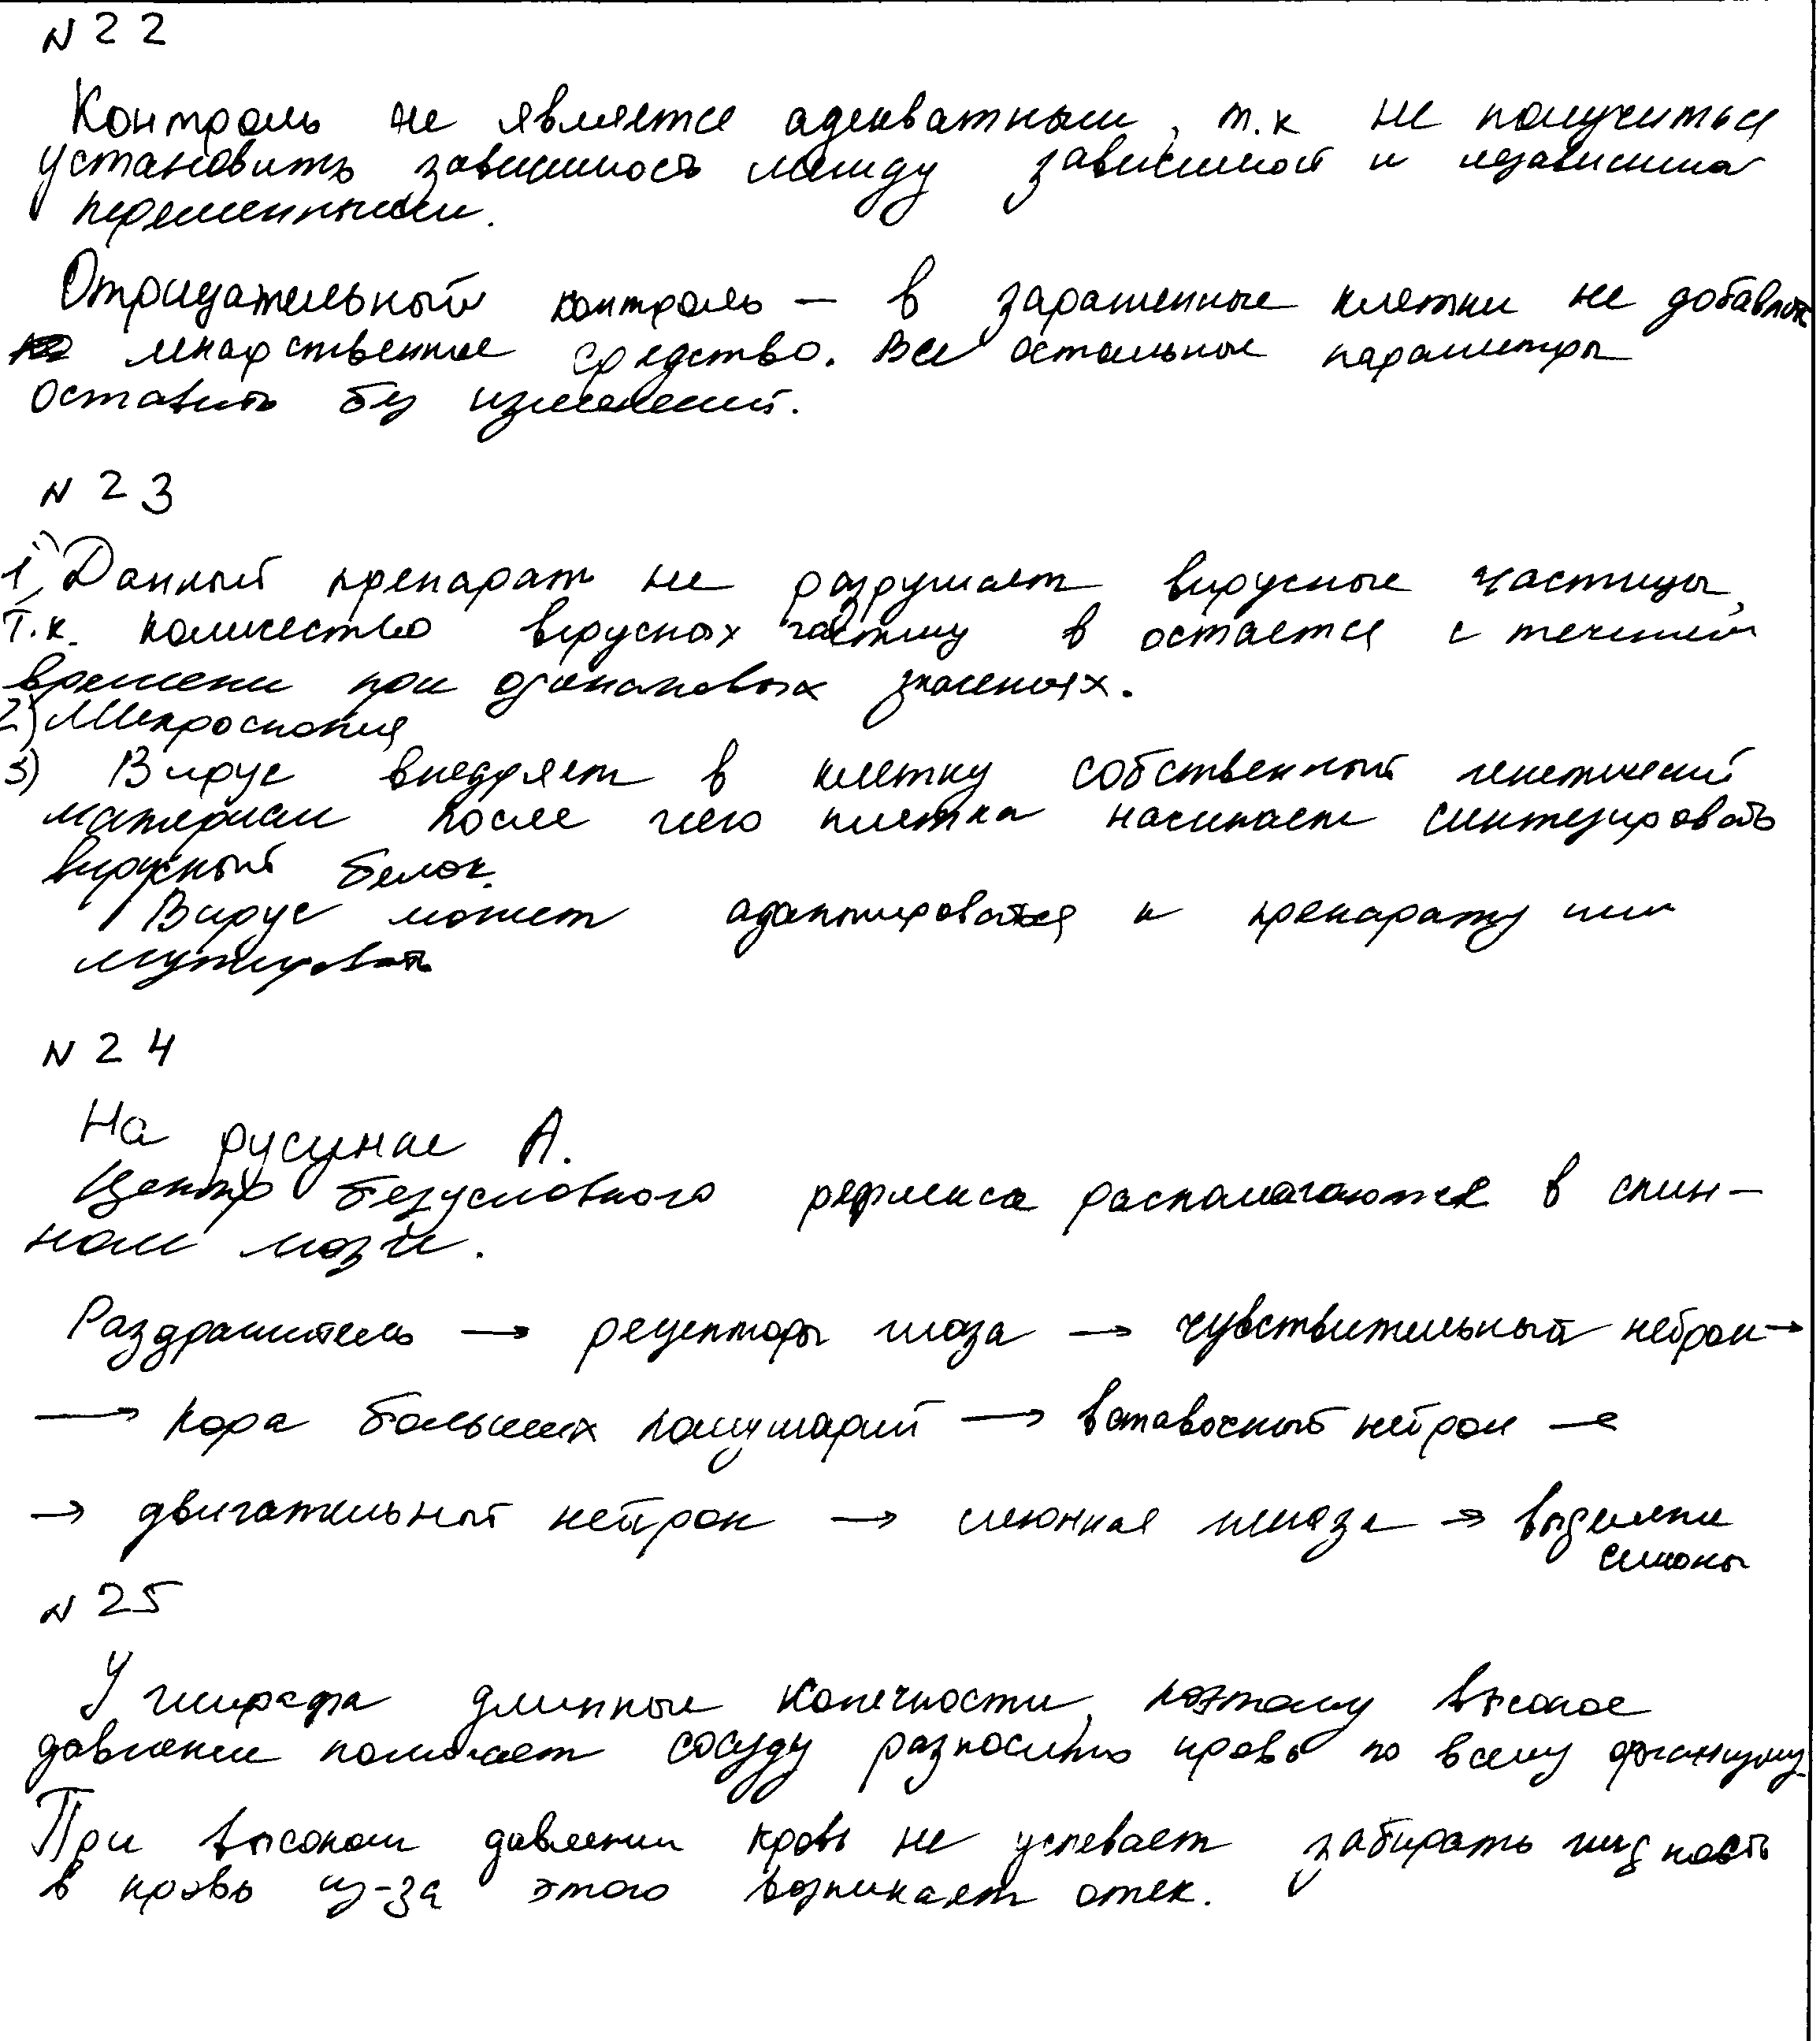 N 22
Контроль не является адекватным, т.к не получиться
установить зависимость между зависимой и независима
переменными.
Отрицательный контроль – в зараженные клетки не добавлять
лекарственное средство. Все остальные параметры
оставить без изменений.
N 23
1) Данный препарат не разрушает вирусные частицы,
т.к. количество вирусных частиц в остается с течением
времени при одинаковых значениях.
2) Микроскопия
3) Вирус внедряет в клетку собственный генетический
материал после чего клетка начинает синтезировать
вирусный белок.
Вирус может адаптироваться к препарату или
мутировать
N 24
На русунке А.
Центр безусловного рефлекса располагаются в спин–
ном мозге.
Раздражитель → рецепторы глаза → чувствительный нейрон →
→ кора больших полушарий → вставочный нейрон →
→ двигательный нейрон → слюнная железа → выделени
слюны
N 25
У жирафа длинные конечности, поэтому высокое
давление помогает сосуду разносить кровь по всему организму.
При высоком давлении кровь не успевает забирать жидкость
в кровь из-за этого возникает отек.